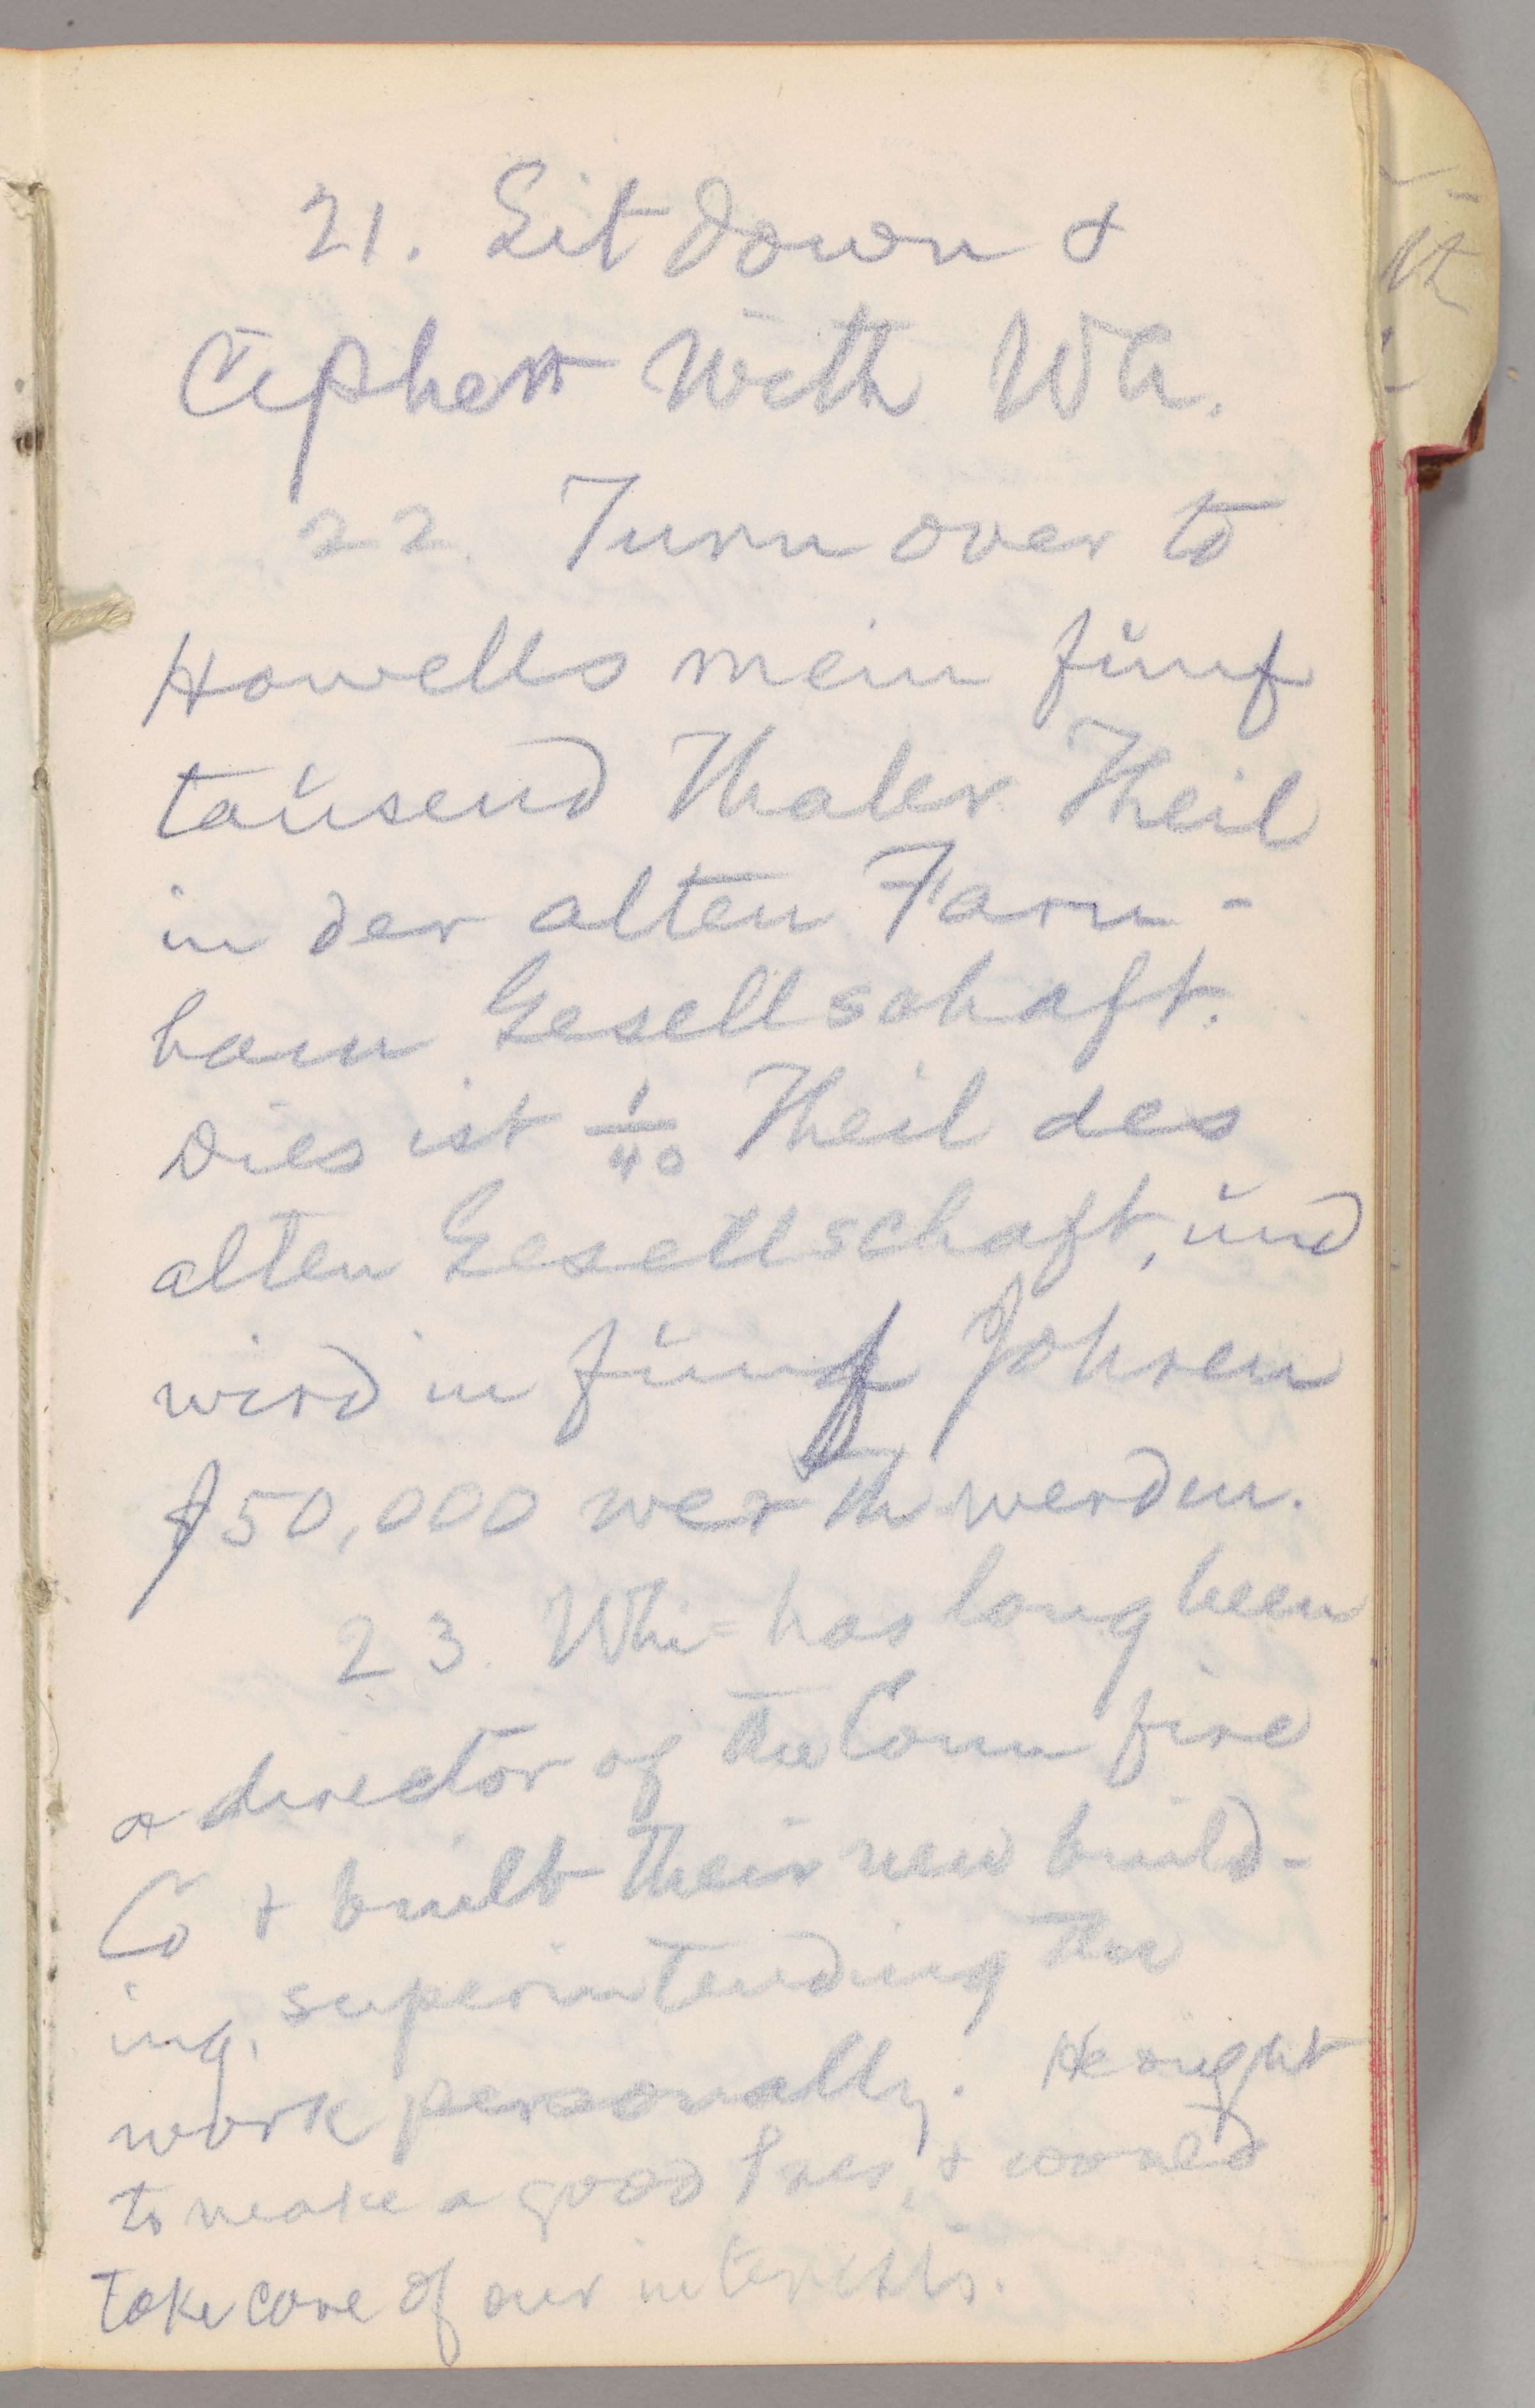 21. Sit down &
Cipher with Wh.
22. Turn over to
Howells mein fünf
taŭsend Thaler Theil
in der alten Farn-
ham Gesellschaft.
Dies ist 1/40 Theil des
alten Gesellschaft, ŭnd
wird in fünf Jahren
$50,000 werth werden.
23. Whi= has long been
a director of the Conn fire
Co & built their new build-
ing, superintending the
work personally. He ought
to make a good Pres, & would
take care of our interests.